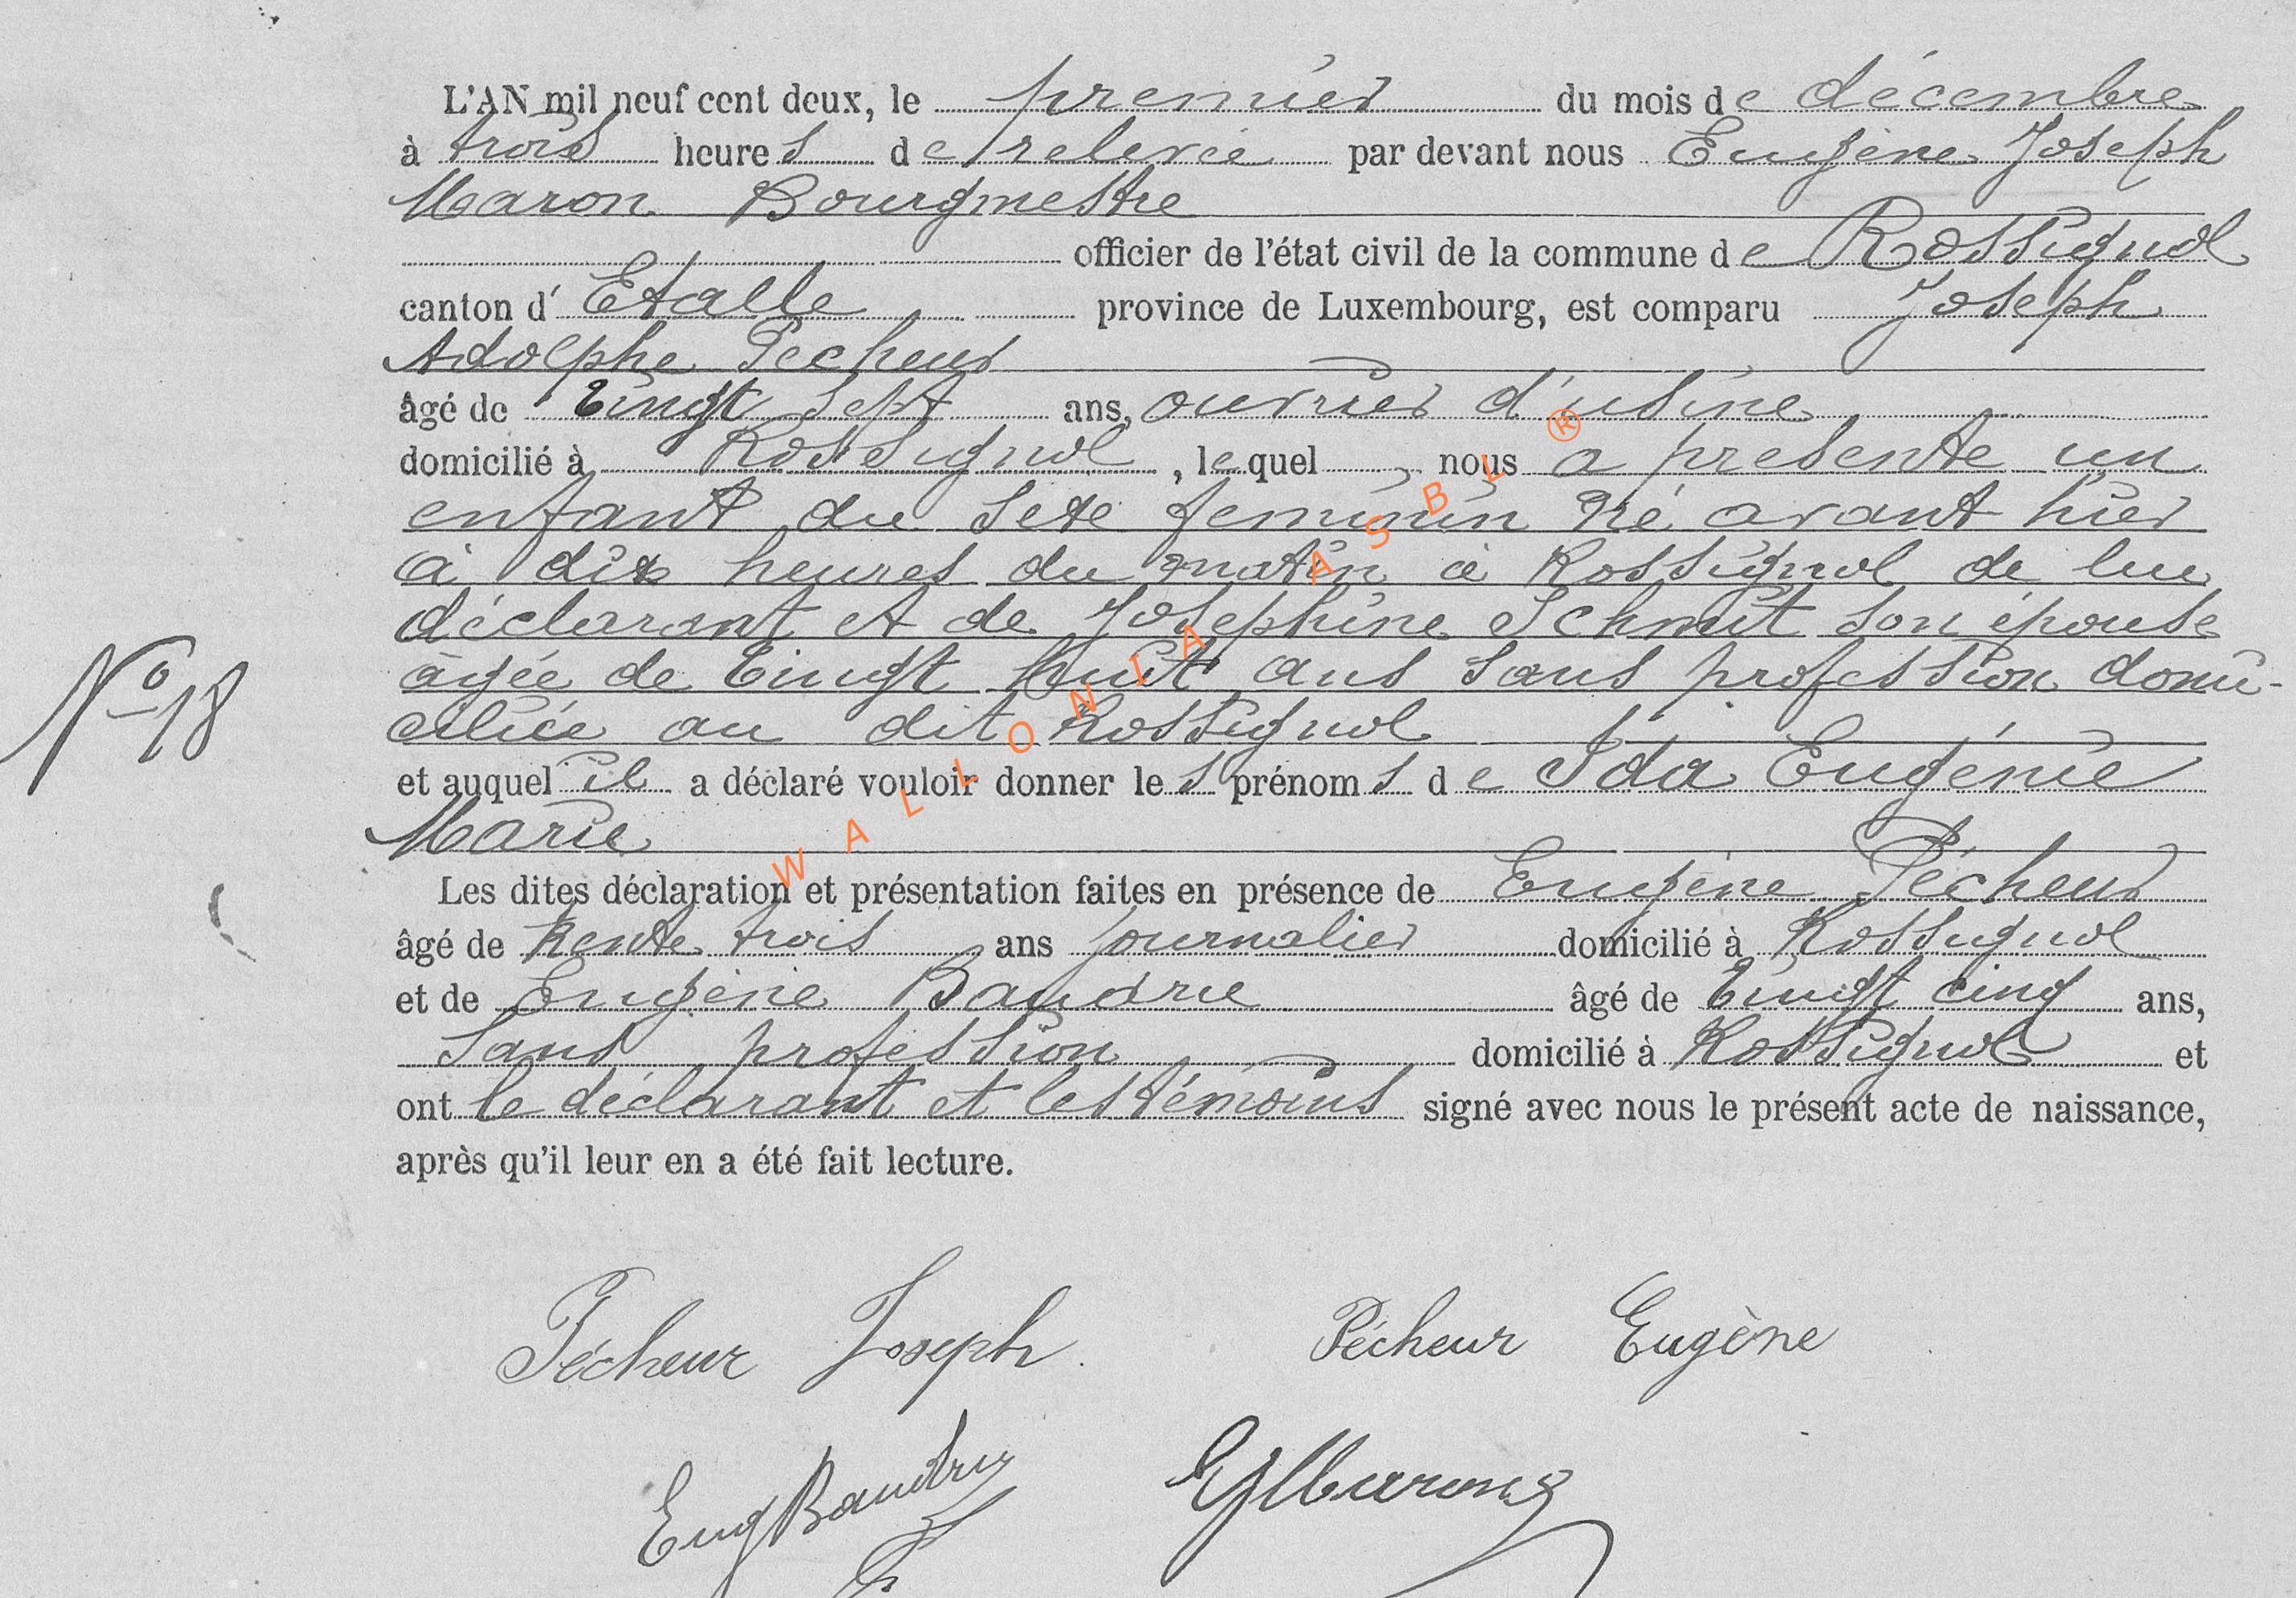 L'AN mil neuf cent deux, le premier du mois de décembre
à trois heures de relevée par devant nous Eugène Joseph
Maron Bourgmestre
officier de l'état civil de la commune de Rossignol
canton d'Etalle province de Luxembourg, est comparu Joseph
Adolphe Pecheur
âgé de Vingt sept ans, ouvrier d'usine
domicilié à Rossignol, lequel nous a présenté un
enfant du sexe feminin né avant hier
à dix heures du matin à Rossignol de lui
déclarant et de Joséphine Schmit son épouse
âgée de Vingt huit ans sans profession domi-
ciliée au dit Rossignol
N° 18
et auquel il a déclaré vouloir donner les prénoms de Ida Eugénie
Marie
Les dites déclaration et présentation faites en présence de Eugène Pécheur
âgé de trente trois ans journalier domicilié à Rossignol
et de Eugène Baudrie âgé de Vingt cinq ans,
sans profession domicilié à Rossignol et
ont le déclarant et les témoins signé avec nous le présent acte de naissance,
après qu'il leur en a été fait lecture.
Pécheur Joseph. Pécheur Eugène
Eug Baudry EJMaron
WALLONIA ASBL ®